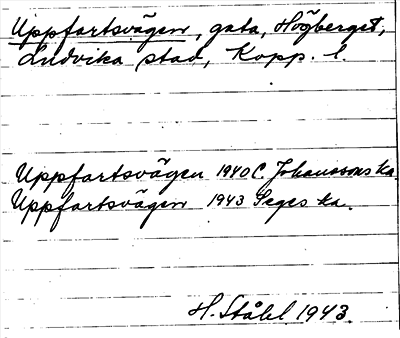 Uppfartsvägen, gata, Högberget,
Ludvika stad, Kopp. l.
Uppfartsvägen 1940 C. Johanssons ka.
Uppfartsvägen 1943 Seges ka.
H. Ståhl 1943.